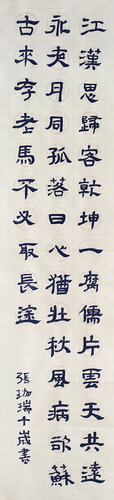 江漢思歸客乾坤一腐儒片雲天共遠
永夜月同孤落日心猶壯秋風病欲蘇
古來存老馬不必取長途
張珈瑞千歲書